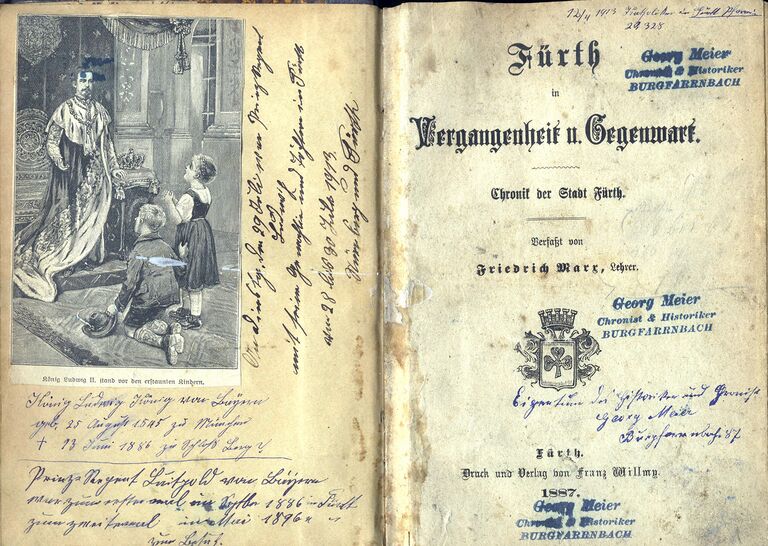 König Ludwig II. stand vor den erstaunten Kindern.
König Ludwig König von Bayern
geb. 25 August 1545 zu München
† 13 Juni 1886 zu Schloß Berg
Prinz Regent Luitpold von Bayern
war zum ersten mal im 1886 in Fürth
zum zweiten mal im Mai 1896
Dienstag, den 29 Juli war
Ludwig
mit seiner Gemahlin und Töchtern in Fürth
am 28 bis 30 Juli 1913
Nürnberg und Fürth
12/4 1913
29328
Fürth
in
Vergangenheit u. Gegenwart.
Chronik der Stadt Fürth.
Verfaßt von
Friedrich Marx, Lehrer.
Georg Meier
Chronist & Historiker
BURGFARRNBACH
Georg Meier
Chronist & Historiker
BURGFARRNBACH
Eigentum des Historiker und Chronist
Georg Meier
Burgfarrnbach 87
Fürth.
Druck und Verlag von Franz Willmy.
1887.
Georg Meier
Chronist & Historiker
BURGFARRNBACH